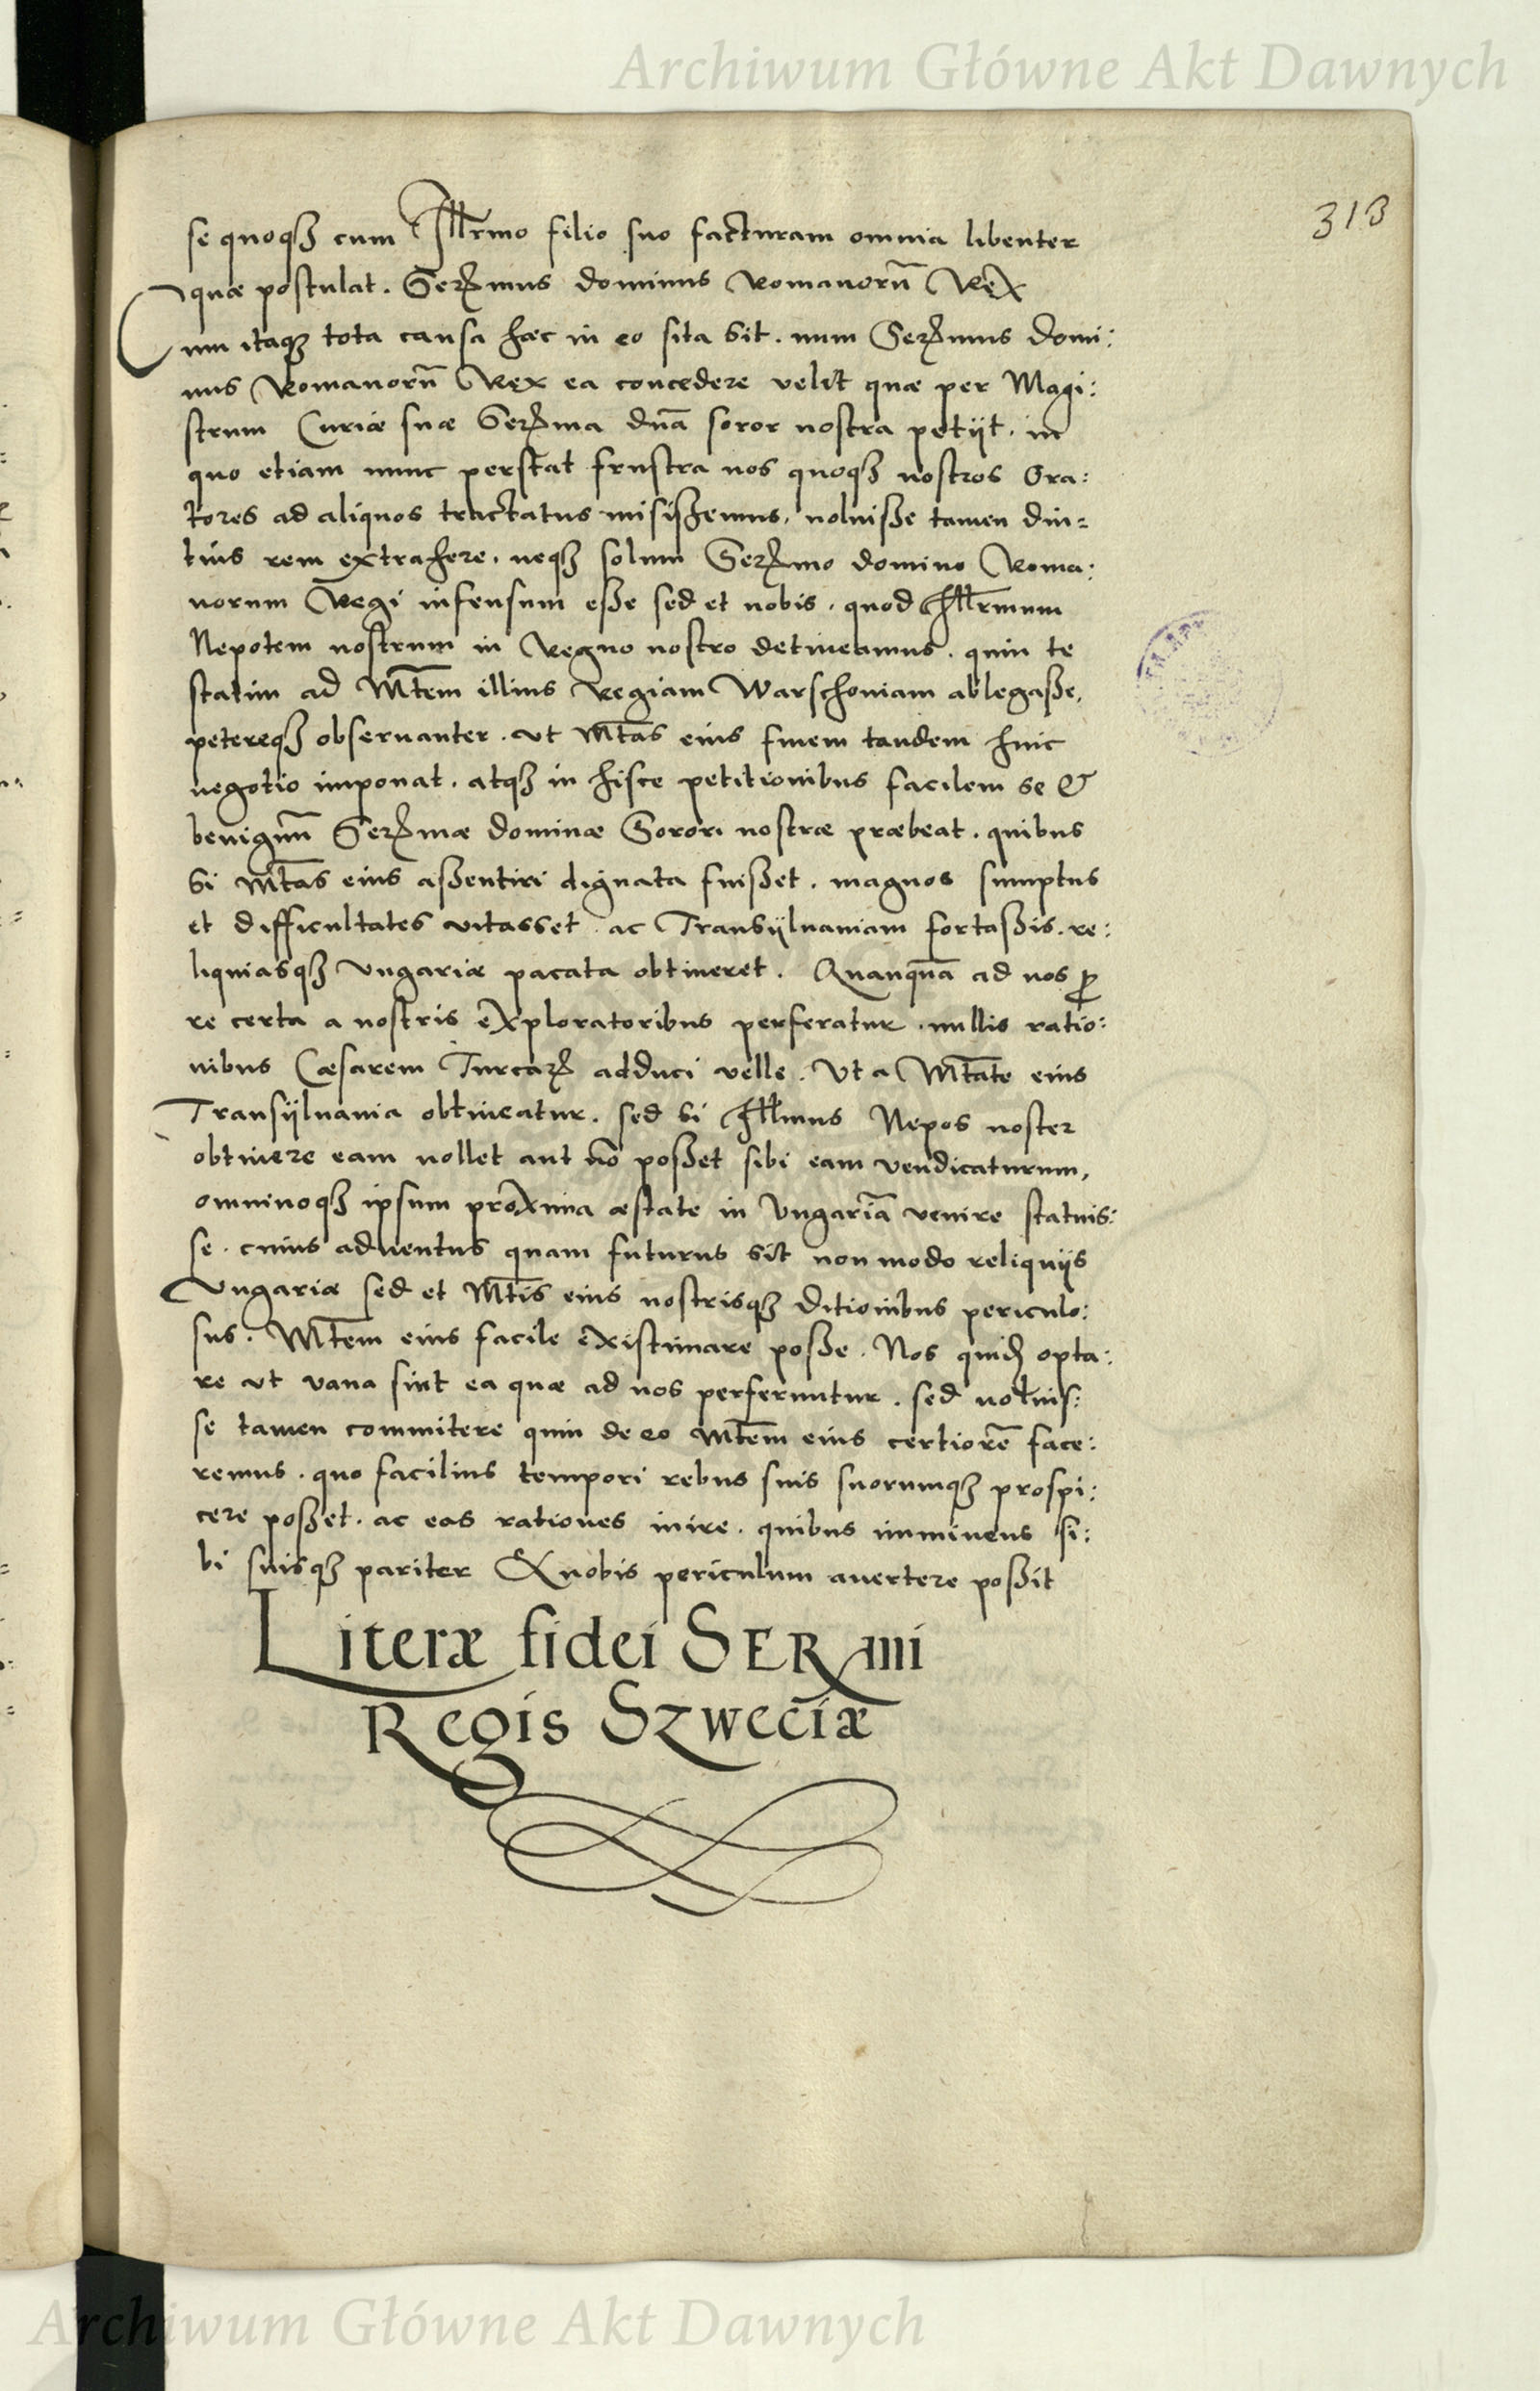 Archiwum Główne Akt Dawnych
313
se quoqꝫ cum Illr̄mo filio suo facturam omnia libenter
quæ postulat. Serꝫmus dominus Romanorū Rex
Cum itaqꝫ tota causa hæc in eo sita sit. num Serꝫmus domi:
nus Romanorū Rex ea concedere velit quæ per Magi:
strum Curiæ suæ Serꝫma dn̄a soror nostra petijt. in
quo etiam nunc perstat frustra nos quoqꝫ nostros Ora:
tores ad aliquos tractatus misißemus, noluiße tamen diu=
tius rem extrahere. neqꝫ solum Serꝫmo domino Roma:
norum Regi infensum eße sed et nobis. quod Illr̄mum
Nepotem nostrum in Regno nostro detineamus. quin te
statim ad Mt̄em illius Regiam Warschouiam ablegaße,
petereqꝫ obseruanter. ut Mt̄as eius finem tandem huic
negotio imponat. atqꝫ in hisce petitionibus facilem se &
benignū Serꝫmæ dominæ Sorori nostræ præbeat. quibus
si Mt̄as eius aßentiri dignata fuißet. magnos sumptus
et difficultates vitasset. ac Transijluaniam fortaßis. re:
liquiasqꝫ Vngariæ pacata obtineret. Quanquā ad nos ꝓ
re certa a nostris exploratoribus perferatur. nullis ratio:
nibus Cæsarem Turcarꝫ adduci velle. Vt a Mt̄ate eius
Transijluania obtineatur. sed si Illmus Nepos noster
obtinere eam nollet aut nō poßet sibi eam vendicaturum,
omninoqꝫ ipsum proxima æstate in Vngariā venire statuis:
se. cuius aduentus quam futurus sit non modo reliquijs
Vngariæ sed et Mt̄is eius nostrisqꝫ ditionibus periculo:
sus. Mt̄em eius facile existimare poße. Nos quidꝫ opta:
re ut vana sint ea quæ ad nos perferuntur. sed noluis:
se tamen commitere quin de eo Mt̄em eius certiorē face:
remus. quo facilius tempori rebus suis suorumqꝫ prospi:
cere poßet. ac eas rationes inire. quibus imminens si:
bi suisqꝫ pariter & nobis periculum auertere poßit
Literæ fidei SERmi
Regis Szweciæ
Archiwum Główne Akt Dawnych